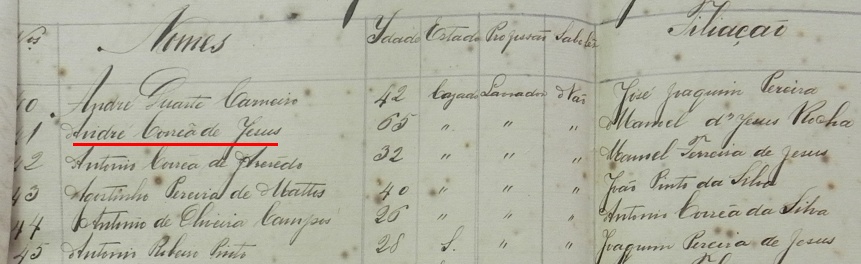 Nos Nomes Idade Estado Profissão Sabe ler Filiação
40 André Duarte Carneiro 42 Cazado Lavrador Não José Joaquim Pereira
41 André Corrêa de Jesus 65 " " " Manoel de Jesus Rocha
42 Antonio Corrêa de Azerêdo 32 " " " Manoel Ferreira de Jesus
43 Agostinho Pereira de Mattos 40 " " " João Pinto da Silva
44 Antonio de Oliveira Campos 26 " " " Antonio Corrêa da Silva
45 Antonio Ribeiro Pinto 28 S. " " Joaquim Pereira de Jesus